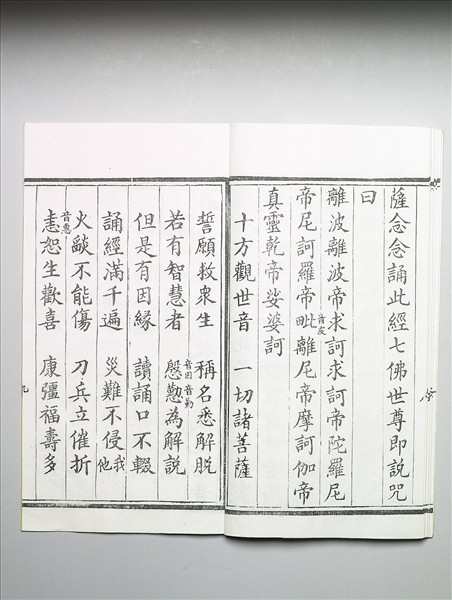 薩念念誦此經七佛世尊即說咒
曰
離波離波帝求訶求訶帝陀羅尼
帝尼訶羅帝毗音皮離尼帝摩訶伽帝
真靈乾帝娑婆訶
十方觀世音 一切諸菩薩
誓願救眾生 稱名悉解脫
若有智慧者 慇懃音因音勤為解說
但是有因緣 讀誦口不輟
誦經滿千遍 災難不侵我他
火燄不能傷 刀兵立催折
恚音惠恕生歡喜 康彊福壽多